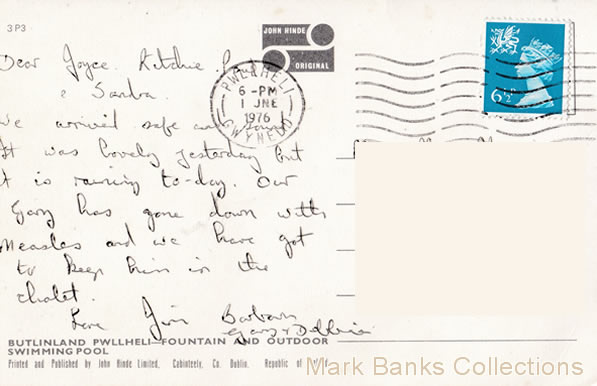 3P3
JOHN HINDE
ORIGINAL
PWLLHELI
6-PM
1 JNE
1976
GWYNEDD
6½P
Dear Joyce. Ritchie
& Sandra.
We arrived safe and sound
It was lovely yesterday but
it is raining to-day. Our
Gary has gone down with
Measles and we have got
to keep him in the
chalet.
Love Jim Barbara
Gary & Debbie
BUTLINLAND PWLLHELI—FOUNTAIN AND OUTDOOR
SWIMMING POOL
Printed and Published by John Hinde Limited, Cabinteely, Co. Dublin. Republic of
Mark Banks Collections